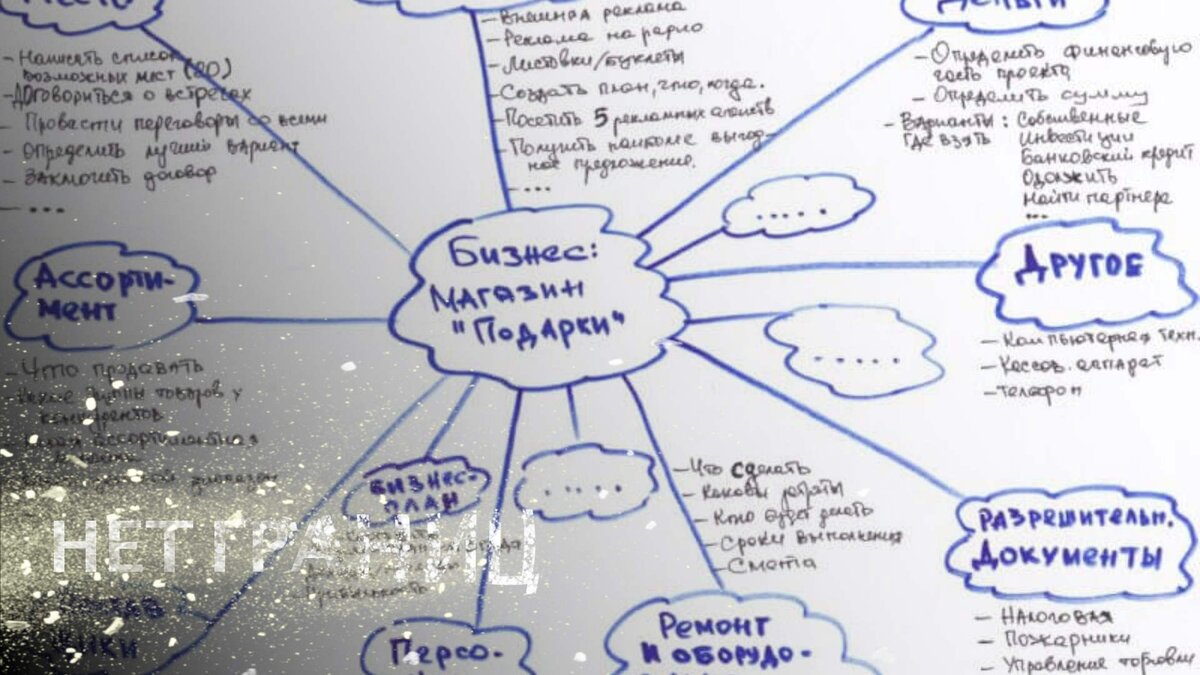 Место
- Написать список
возможных мест (20)
- Договориться о встречах
- Провести переговоры со всеми
- Определить лучший вариант
- Заключить договор
- ...
- Внешняя реклама
- Реклама на радио
- Листовки/буклеты
- Создать план, что, когда.
- Посетить 5 рекламных агентств
- Получить наиболее выгод-
ное предложение.
- ...
Деньги
- Определить финансовую
часть проекта
- Определить сумму
- Варианты: Собственные
где взять Инвестиции
Банковский кредит
Одолжить
Найти партнера
...
.....
Ассорти-
мент
- Что продавать
товаров у
конкурентов
Бизнес:
магазин
"Подарки"
Другое
- Компьютерная техн.
- Кассов. аппарат
- Телефон
.....
Бизнес-
план
.....
- Что сделать
- Каковы затраты
- Кто будет делать
- Сроки выполнения
- Смета
Разрешительн.
документы
- Налоговая
- Пожарники
- Управление торговли
НЕТ ГРАНИЦ
Персо-
Ремонт
и оборудо-